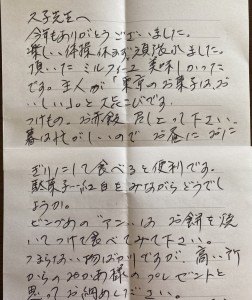 久子先生へ
今年もありがとうございました。
楽しい体操休まず頑張れました。
頂いたミルフィーユ美味しかった
です。主人が「東京のお菓子はお
いしい」と大よろこびです。
つけもの。お赤飯 召し上って下さい。
暮は忙がしいので お昼に おに
ぎりにして食べると便利です。
駄菓子 紅白をみながらどうでし
ょうか。
ビンづめの「アン」は お餅を焼
いてつけて食べてみて下さい。
つまらない物ばかりですが、高い所
からの のプレゼントと
思ってお納めください。